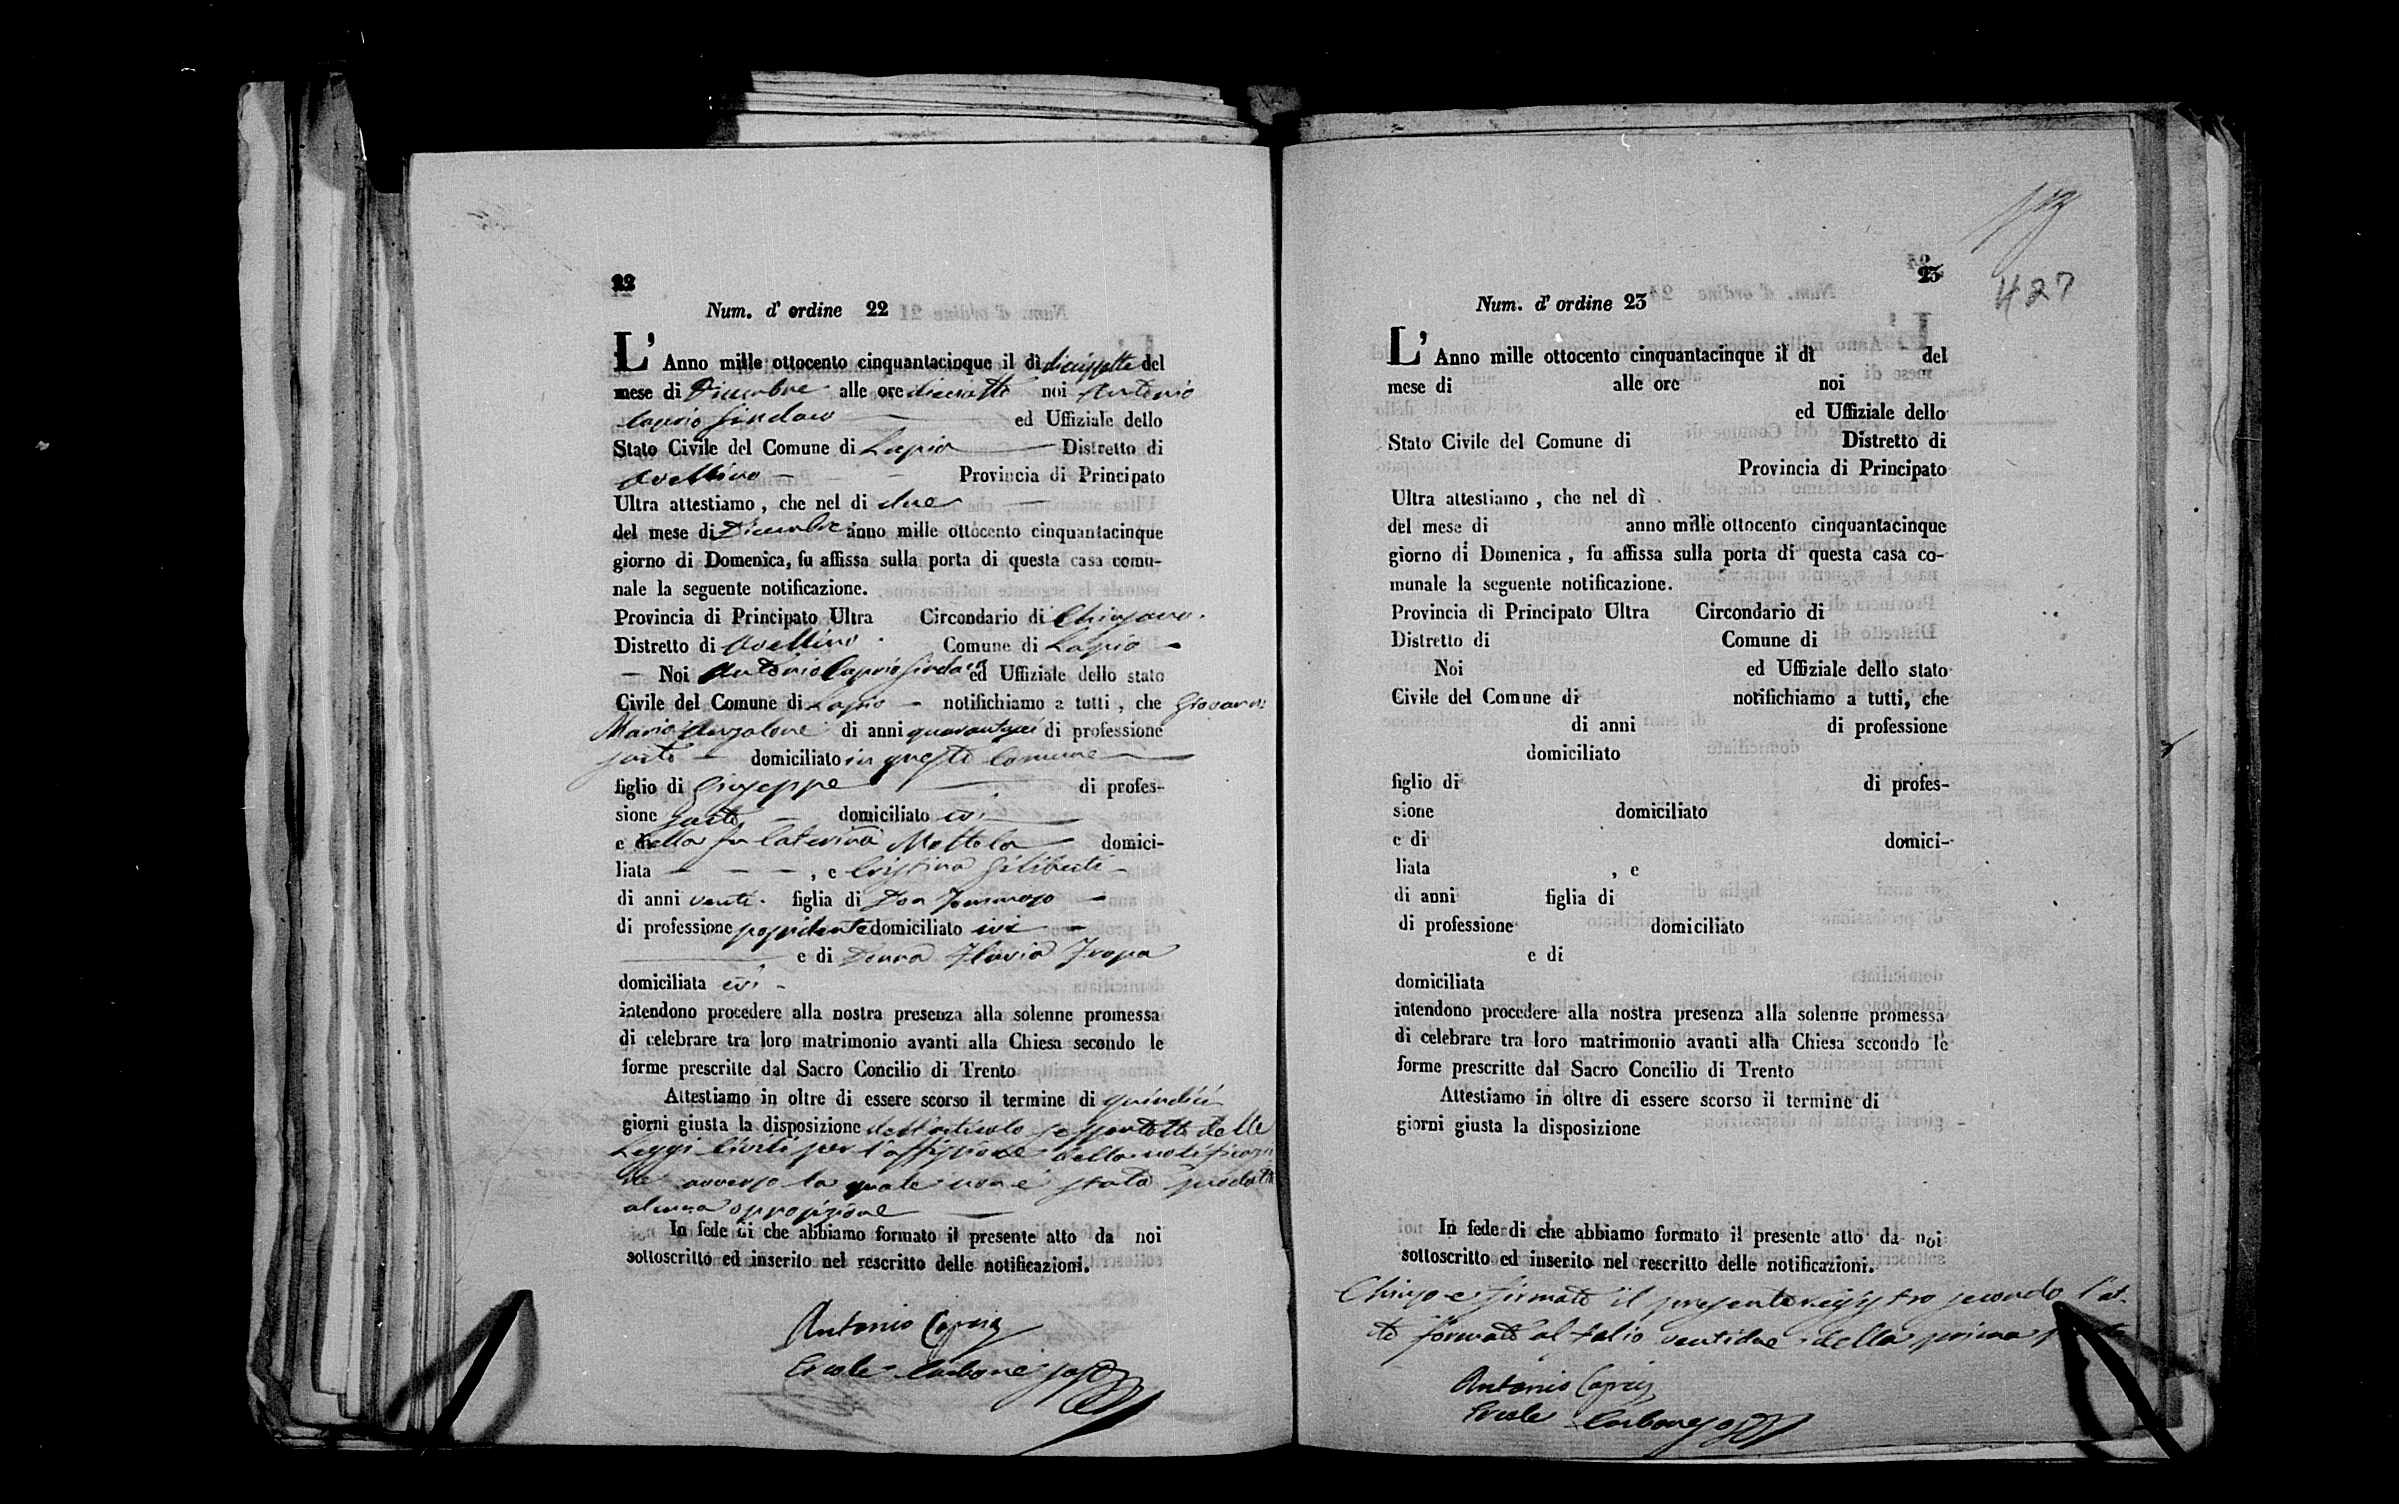 22
Num. d' ordine 22
L' Anno mille ottocento cinquantacinque il dì diciassette del
mese di Dicembre alle ore diecisette noi Antonio
Caprio Sindaco ed Uffiziale dello
Stato Civile del Comune di Lapio Distretto di
Avellino Provincia di Principato
Ultra attestiamo, che nel di due
del mese di Dicembre anno mille ottocento cinquantacinque
giorno di Domenica, fu affissa sulla porta di questa casa comu-
nale la seguente notificazione.
Provincia di Principato Ultra Circondario di Chiusano
Distretto di Avellino Comune di Lapio
Noi Antonio Caprio Sindaco ed Uffiziale dello stato
Civile del Comune di Lapio notifichiamo a tutti, che Giovanni
Maria Anzalone di anni di professione
sarto domiciliato in questo Comune
figlio di Giuseppe di profes-
sione sarto domiciliato ivi
e della fu Caterina Mottola domici-
liata , e Cristina Giliberti
di anni venti figlia di Don Tommaso
di professione possidente domiciliato ivi
e di Donna Flavia
domiciliata ivi
intendono procedere alla nostra presenza alla solenne promessa
di celebrare tra loro matrimonio avanti alla Chiesa secondo le
forme prescritte dal Sacro Concilio di Trento
Attestiamo in oltre di essere scorso il termine di quindici
giorni giusta la disposizione dell'articolo sessantotto delle
Leggi Civili per l'affissione della notificazio
ne avverso la quale non è stata prodotta
alcuna opposizione
In fede di che abbiamo formato il presente atto da noi
sottoscritto ed inserito nel rescritto delle notificazioni.
Antonio Caprio
Ercole Carbone
23
427
Num. d' ordine 23
L' Anno mille ottocento cinquantacinque il dì del
mese di alle ore noi
ed Uffiziale dello
Stato Civile del Comune di Distretto di
Provincia di Principato
Ultra attestiamo, che nel dì
del mese di anno mille ottocento cinquantacinque
giorno di Domenica, fu affissa sulla porta di questa casa co-
munale la seguente notificazione.
Provincia di Principato Ultra Circondario di
Distretto di Comune di
Noi ed Uffiziale dello stato
Civile del Comune di notifichiamo a tutti, che
di anni di professione
domiciliato
figlio di di profes-
sione domiciliato
e di domici-
liata , e
di anni figlia di
di professione domiciliato
e di
domiciliata
intendono procedere alla nostra presenza alla solenne promessa
di celebrare tra loro matrimonio avanti alla Chiesa secondo le
forme prescritte dal Sacro Concilio di Trento
Attestiamo in oltre di essere scorso il termine di
giorni giusta la disposizione
In fede di che abbiamo formato il presente atto da noi
sottoscritto ed inserito nel rescritto delle notificazioni.
Chiuso e firmato il presente registro secondo l'at-
to formato al folio ventidue della prima
Antonio Caprio
Ercole Carbone